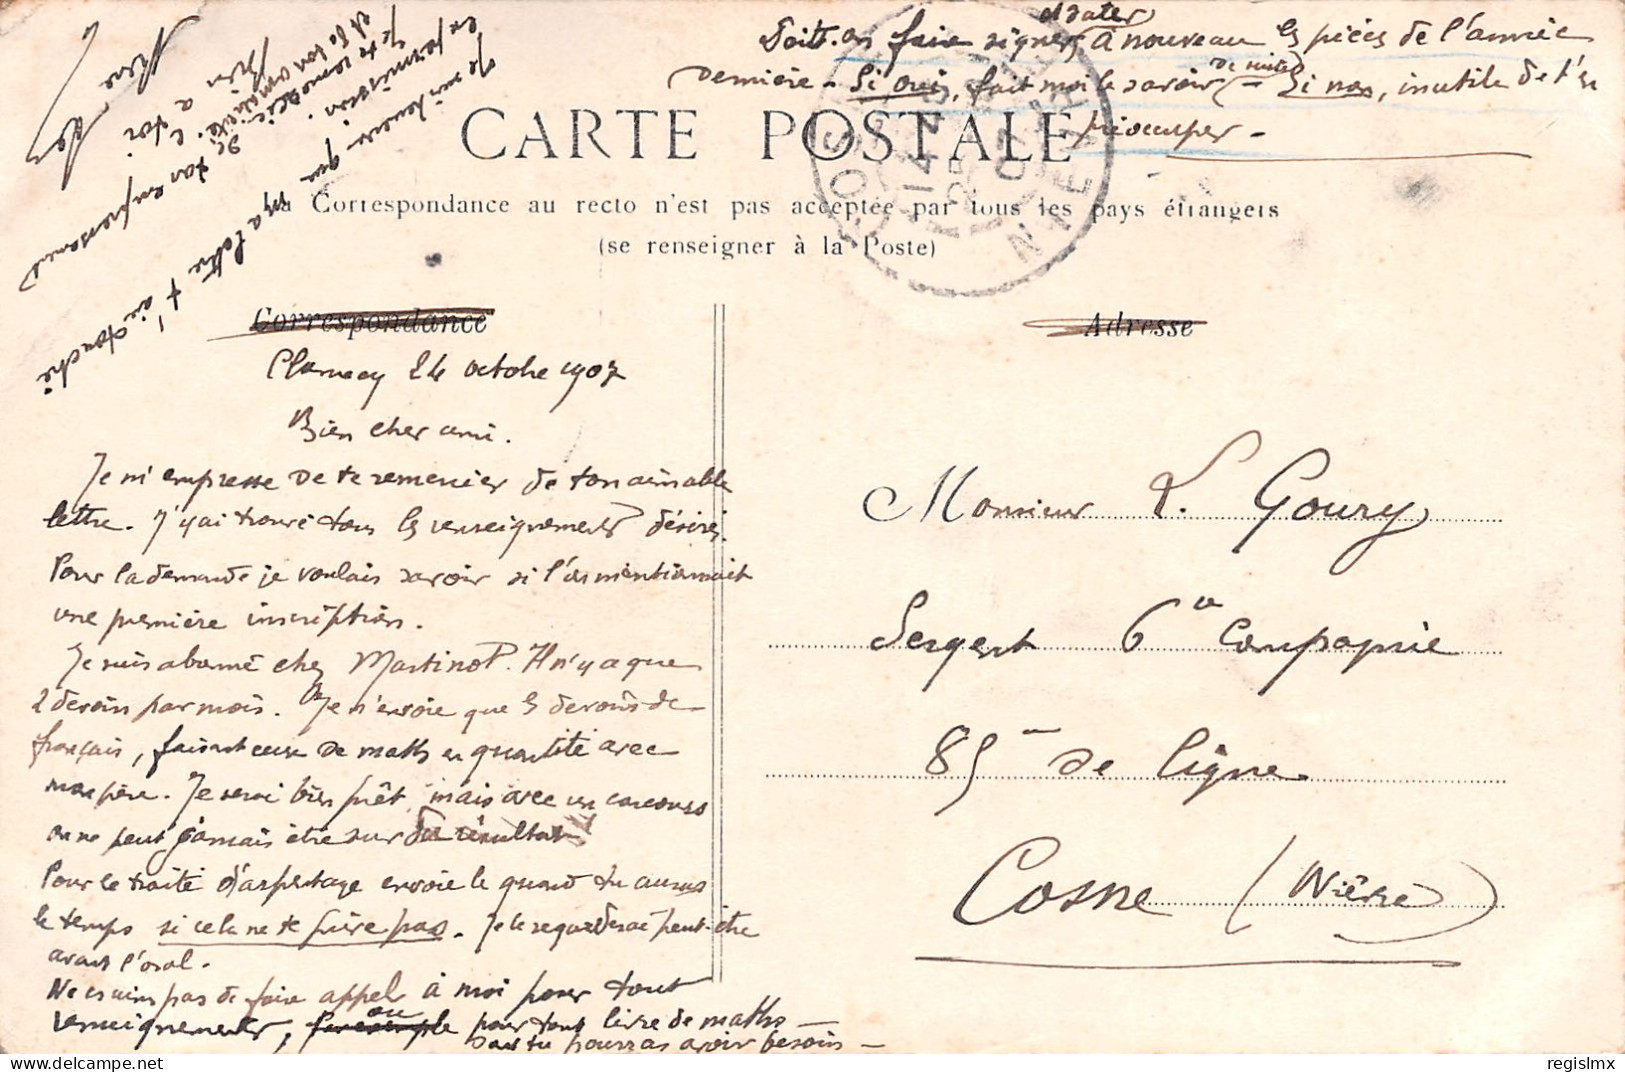 et dater
Doit-on faire signer à nouveau les pièces de l'année
dernière - Si oui, fait moi le savoir (de suite) - Si non, inutile de t'en
préoccuper -
CARTE POSTALE
La Correspondance au recto n'est pas acceptée par tous les pays étrangers
(se renseigner à la Poste)
Correspondance
Adresse
Clamecy 24 octobre 1907
Bien cher ami.
Je m'empresse de te remercier de ton aimable
lettre. J'y ai trouvé tous les renseignements désirés.
Pour la demande je voulais savoir si l'on mentionnait
une première inscription.
Je suis abonné chez Martinot. Il n'y a que
2 devoirs par mois. Je n'envoie que les devoirs de
français, faisant ceux de maths en quantité avec
mon père. Je serai bien prêt, mais avec un concours
on ne peut jamais être sur du résultat
Pour le traité d'arpentage envoie le quand tu auras
le temps si cela ne te prive pas. Je le regarderai peut-être
avant l'oral.
Ne crains pas de faire appel à moi pour tout
renseignements, ou pour tout livre de maths -
dont tu pourras avoir besoin -
Monsieur L. Goury
Sergent 6e Compagnie
85me de ligne
Cosne (Nièvre)
Je suis heureux que ma lettre t'ai touché
en permission.
Je te remercie de ton empressement
et de ton amabilité.
bien à toi
regislmx